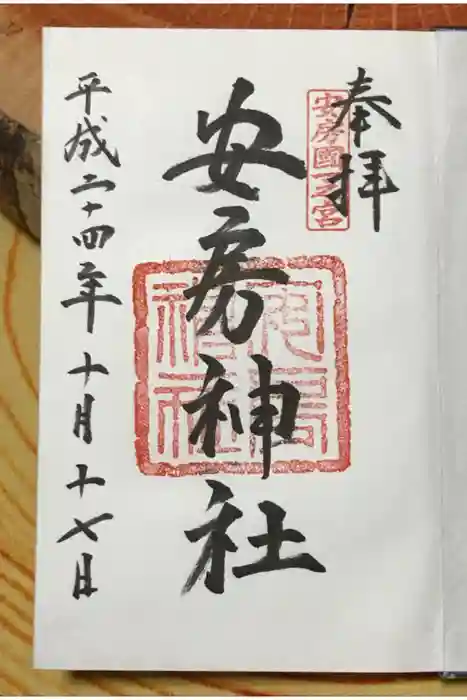 奉拝
安房國一之宮
安房神社
安房神社
平成二十四年十月十七日